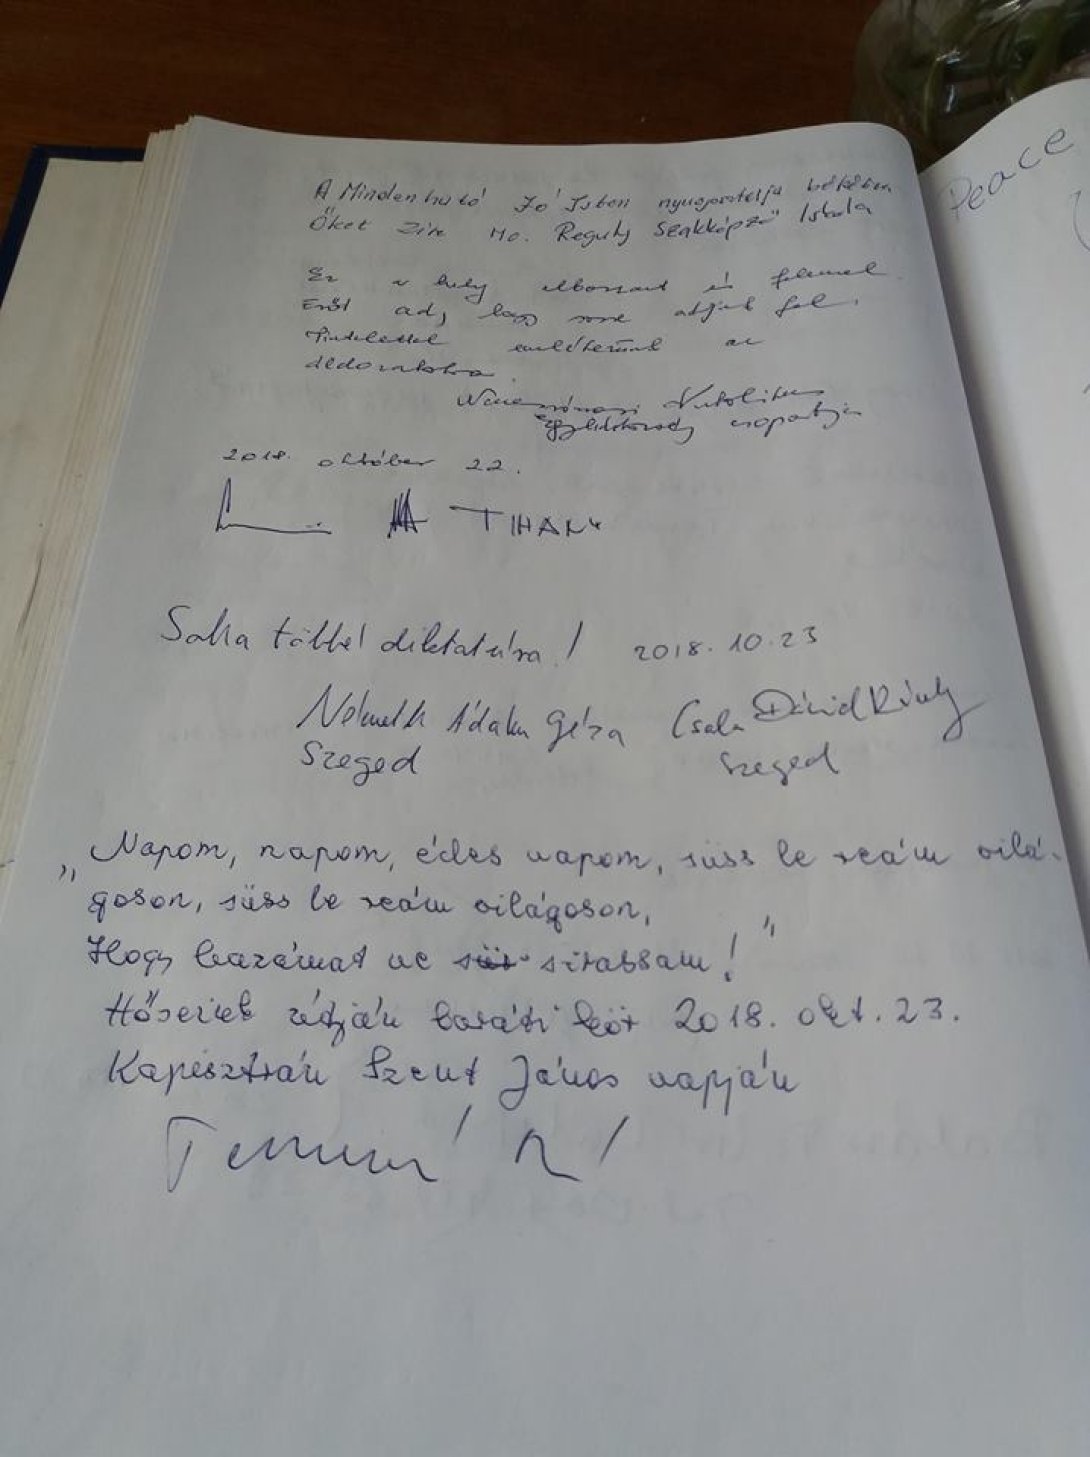 A Mindenható Jó Isten nyugosztalja békében
Őket Zirc Mo. Reguly Szakképző Iskola
Ez a hely elborzaszt és felemel.
Erőt ad, hogy sose adjuk fel.
Tisztelettel emlékezünk az
áldozatokra.
Katolikus
csoportja
2018. október 22.
TIHANY
Soha többé diktatúra! 2018.10.23
Németh Ádám Géza Csala Dávid Károly
Szeged Szeged
„Napom, napom, édes napom, süss le reám vilá-
goson, süss le reám világoson,
Hogy hazámat ne sirassam!"
Hőseink útján baráti kör 2018. okt. 23.
Kapisztrán Szent János napján